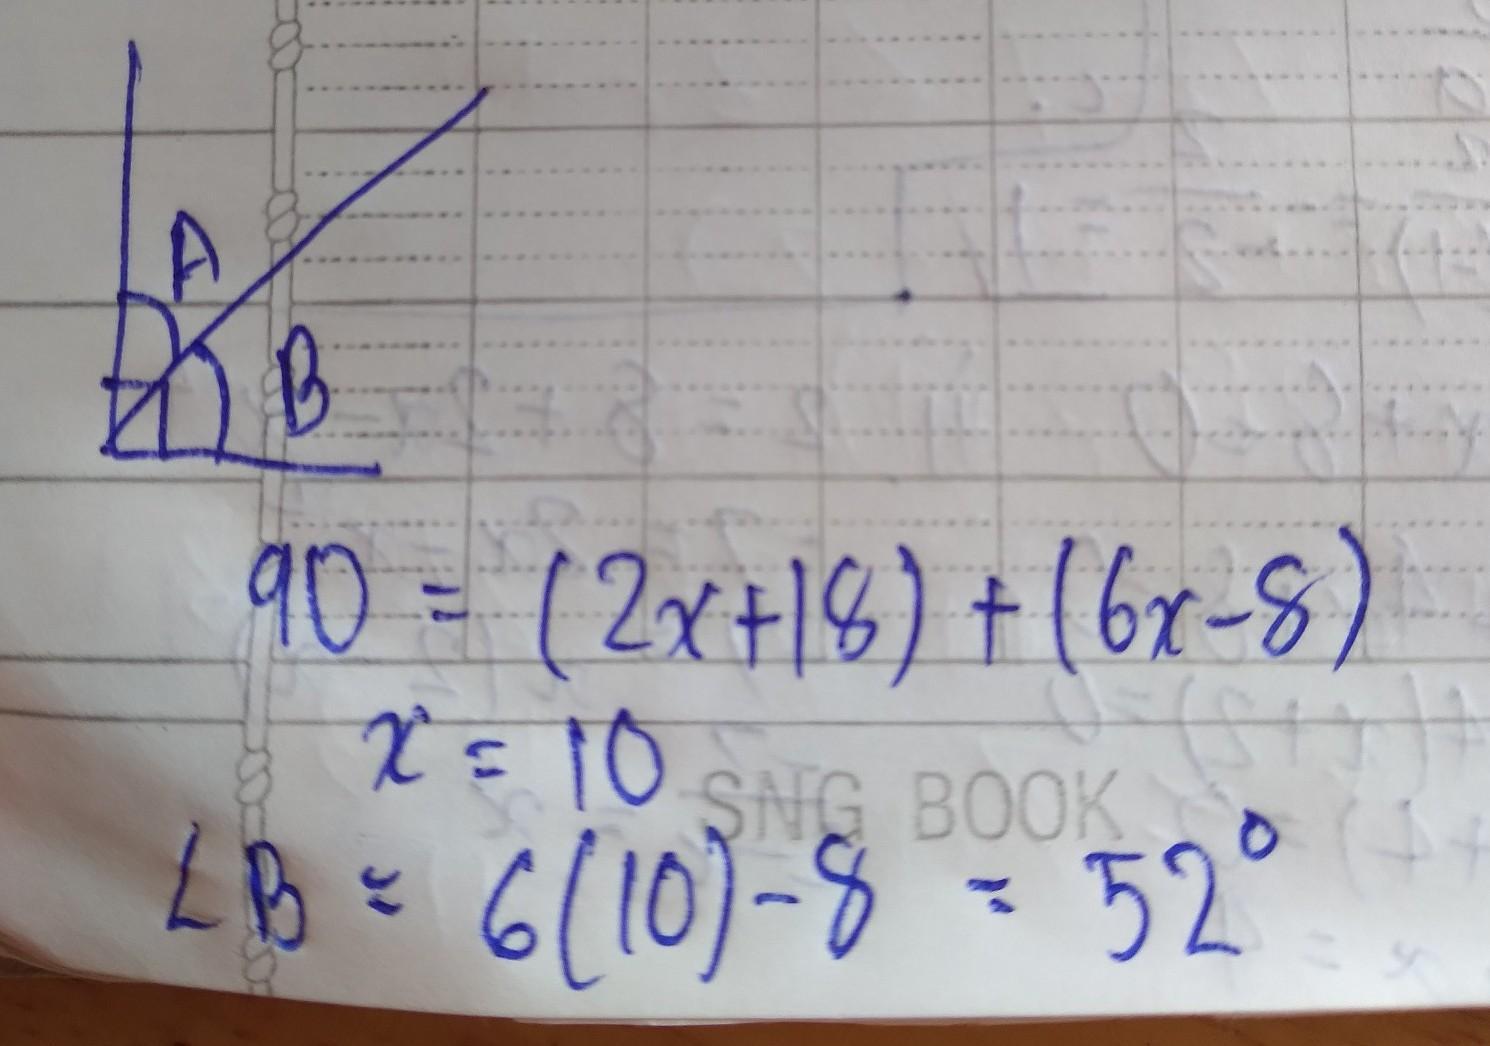 A
B
90 = (2x+18) + (6x-8)
x = 10
SNG BOOK
∠B = 6(10)-8 = 52°